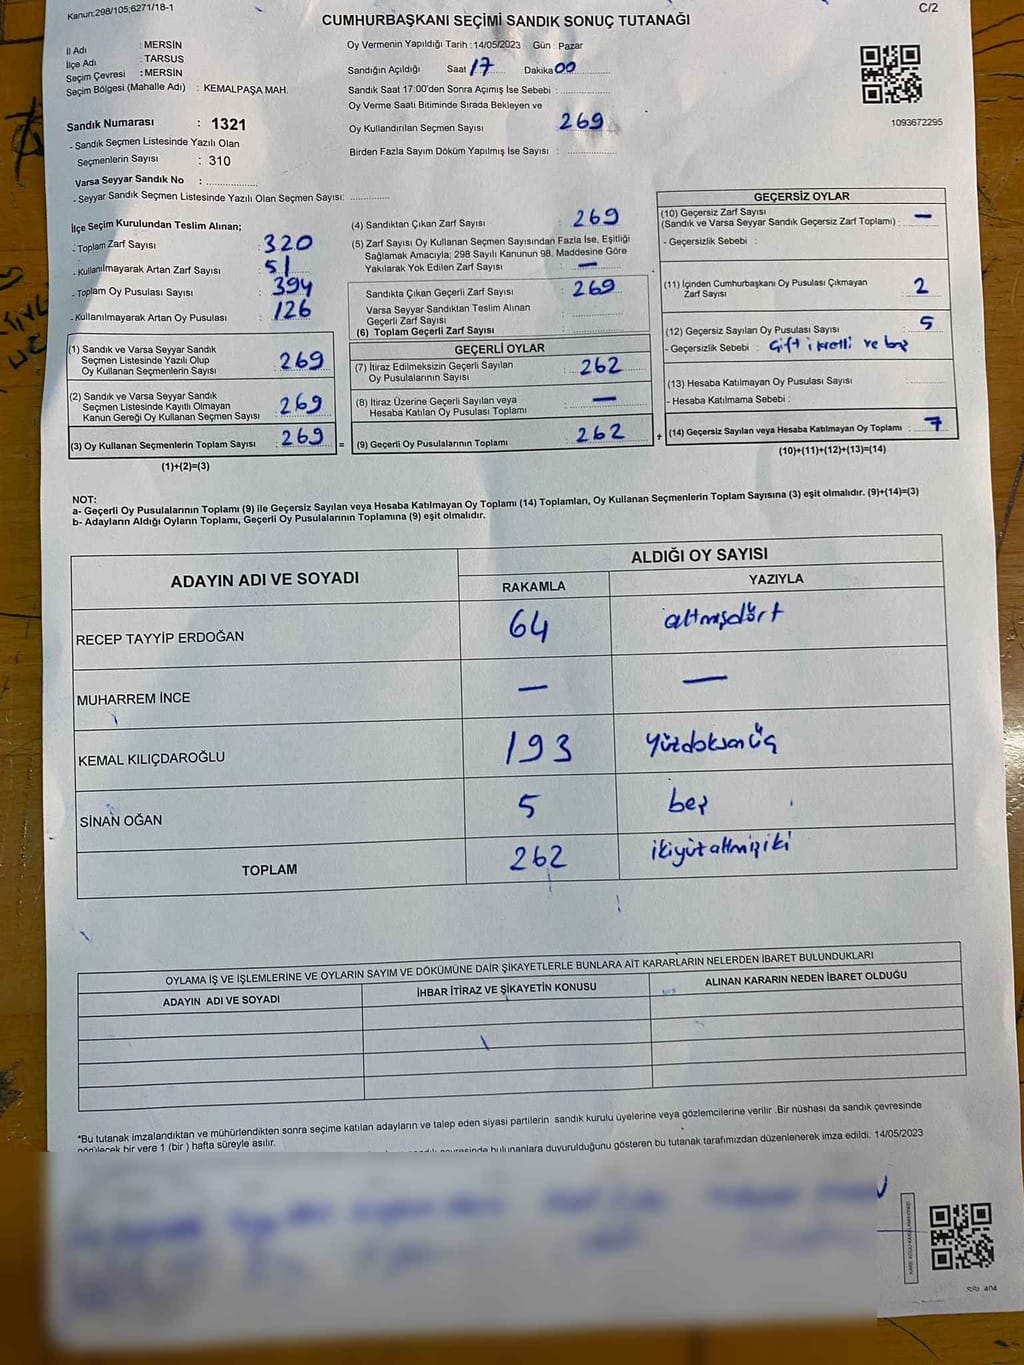 Kanun:298/105,6271/18-1
C/2
CUMHURBAŞKANI SEÇİMİ SANDIK SONUÇ TUTANAĞI
İl Adı : MERSİN
İlçe Adı : TARSUS
Seçim Çevresi : MERSİN
Seçim Bölgesi (Mahalle Adı) : KEMALPAŞA MAH.
Sandık Numarası : 1321
- Sandık Seçmen Listesinde Yazılı Olan
Seçmenlerin Sayısı : 310
Varsa Seyyar Sandık No :
- Seyyar Sandık Seçmen Listesinde Yazılı Olan Seçmen Sayısı:
Oy Vermenin Yapıldığı Tarih : 14/05/2023 Gün : Pazar
Sandığın Açıldığı Saat 17 Dakika 00
Sandık Saat 17:00'den Sonra Açımış İse Sebebi :
Oy Verme Saati Bitiminde Sırada Bekleyen ve
Oy Kullandırılan Seçmen Sayısı 269
Birden Fazla Sayım Döküm Yapılmış İse Sayısı :
1093672295
İlçe Seçim Kurulundan Teslim Alınan;
- Toplam Zarf Sayısı : 320
- Kullanılmayarak Artan Zarf Sayısı : 51
- Toplam Oy Pusulası Sayısı : 394
- Kullanılmayarak Artan Oy Pusulası : 126
(1) Sandık ve Varsa Seyyar Sandık
Seçmen Listesinde Yazılı Olup
Oy Kullanan Seçmenlerin Sayısı : 269
(2) Sandık ve Varsa Seyyar Sandık
Seçmen Listesinde Kayıtlı Olmayan
Kanun Gereği Oy Kullanan Seçmen Sayısı : 269
(3) Oy Kullanan Seçmenlerin Toplam Sayısı : 269 =
(1)+(2)=(3)
(4) Sandıktan Çıkan Zarf Sayısı : 269
(5) Zarf Sayısı Oy Kullanan Seçmen Sayısından Fazla İse, Eşitliği
Sağlamak Amacıyla; 298 Sayılı Kanunun 98. Maddesine Göre
Yakılarak Yok Edilen Zarf Sayısı : —
Sandıkta Çıkan Geçerli Zarf Sayısı : 269
Varsa Seyyar Sandıktan Teslim Alınan
Geçerli Zarf Sayısı :
(6) Toplam Geçerli Zarf Sayısı :
GEÇERLİ OYLAR
(7) İtiraz Edilmeksizin Geçerli Sayılan
Oy Pusulalarının Sayısı : 262
(8) İtiraz Üzerine Geçerli Sayılan veya
Hesaba Katılan Oy Pusulası Toplamı : —
(9) Geçerli Oy Pusulalarının Toplamı : 262 +
GEÇERSİZ OYLAR
(10) Geçersiz Zarf Sayısı
(Sandık ve Varsa Seyyar Sandık Geçersiz Zarf Toplamı) : —
- Geçersizlik Sebebi :
(11) İçinden Cumhurbaşkanı Oy Pusulası Çıkmayan
Zarf Sayısı : 2
(12) Geçersiz Sayılan Oy Pusulası Sayısı : 5
- Geçersizlik Sebebi : Çift ve boş
(13) Hesaba Katılmayan Oy Pusulası Sayısı :
- Hesaba Katılmama Sebebi :
(14) Geçersiz Sayılan veya Hesaba Katılmayan Oy Toplamı : 7
(10)+(11)+(12)+(13)=(14)
NOT:
a- Geçerli Oy Pusulalarının Toplamı (9) ile Geçersiz Sayılan veya Hesaba Katılmayan Oy Toplamı (14) Toplamları, Oy Kullanan Seçmenlerin Toplam Sayısına (3) eşit olmalıdır. (9)+(14)=(3)
b- Adayların Aldığı Oyların Toplamı, Geçerli Oy Pusulalarının Toplamına (9) eşit olmalıdır.
ADAYIN ADI VE SOYADI
ALDIĞI OY SAYISI
RAKAMLA YAZIYLA
RECEP TAYYİP ERDOĞAN 64 altmışdört
MUHARREM İNCE — —
KEMAL KILIÇDAROĞLU 193 yüzdoksanüç
SİNAN OĞAN 5 beş
TOPLAM 262 ikiyüzaltmışiki
OYLAMA İŞ VE İŞLEMLERİNE VE OYLARIN SAYIM VE DÖKÜMÜNE DAİR ŞİKAYETLERLE BUNLARA AİT KARARLARIN NELERDEN İBARET BULUNDUKLARI
ADAYIN ADI VE SOYADI İHBAR İTİRAZ VE ŞİKAYETİN KONUSU ALINAN KARARIN NEDEN İBARET OLDUĞU
*Bu tutanak imzalandıktan ve mühürlendikten sonra seçime katılan adayların ve talep eden siyasi partilerin sandık kurulu üyelerine veya gözlemcilerine verilir .Bir nüshası da sandık çevresinde
görülecek bir yere 1 (bir ) hafta süreyle asılır.
bulunanlara duyurulduğunu gösteren bu tutanak tarafımızdan düzenlenerek imza edildi. 14/05/2023